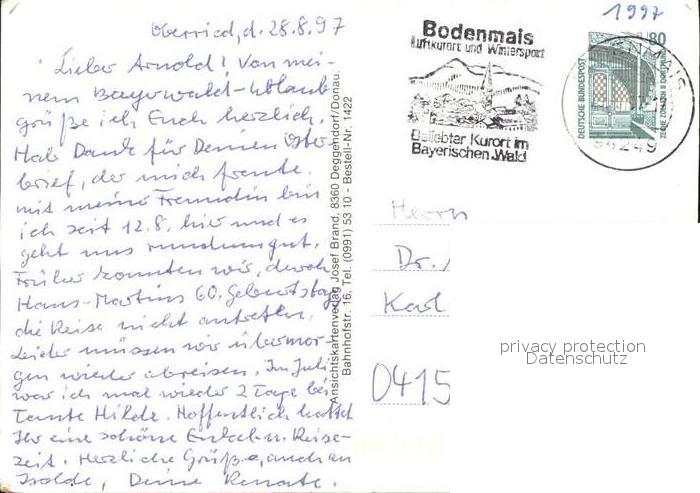 1997
Oberried, d. 28.8.97
Lieber Arnold! Von mei-
nem Bayerwald-Urlaub
grüße ich Euch herzlich.
Hab Dank für Deinen Oster-
brief, der mich freute.
mit meine Freundin bin
ich seit 12.8. hier und es
geht uns rundum gut.
Früher konnten wir, durch
Hans-Martins 60. Geburtstag
die Reise nicht antreten.
Leider müssen wir übermor-
gen wieder abreisen. Im Juli
war ich mal wieder 2 Tage bei
Tante Hilde. Hoffentlich hattet
Ihr eine schöne Reise-
zeit. Herzliche Grüße, auch an
Isolde, Deine Renate.
Ansichtskartenverlag Josef Brand, 8360 Deggendorf/Donau.
Bahnhofstr. 16, Tel. (0991) 53 10 - Bestell-Nr. 1422
Bodenmais
Luftkurort und Wintersport
Beliebter Kurort im
Bayerischen Wald
80
DEUTSCHE BUNDESPOST
ZECHE ZOLLERN II DORTMUND
94249
Herrn
Dr.
Karl
0415
privacy protection
Datenschutz